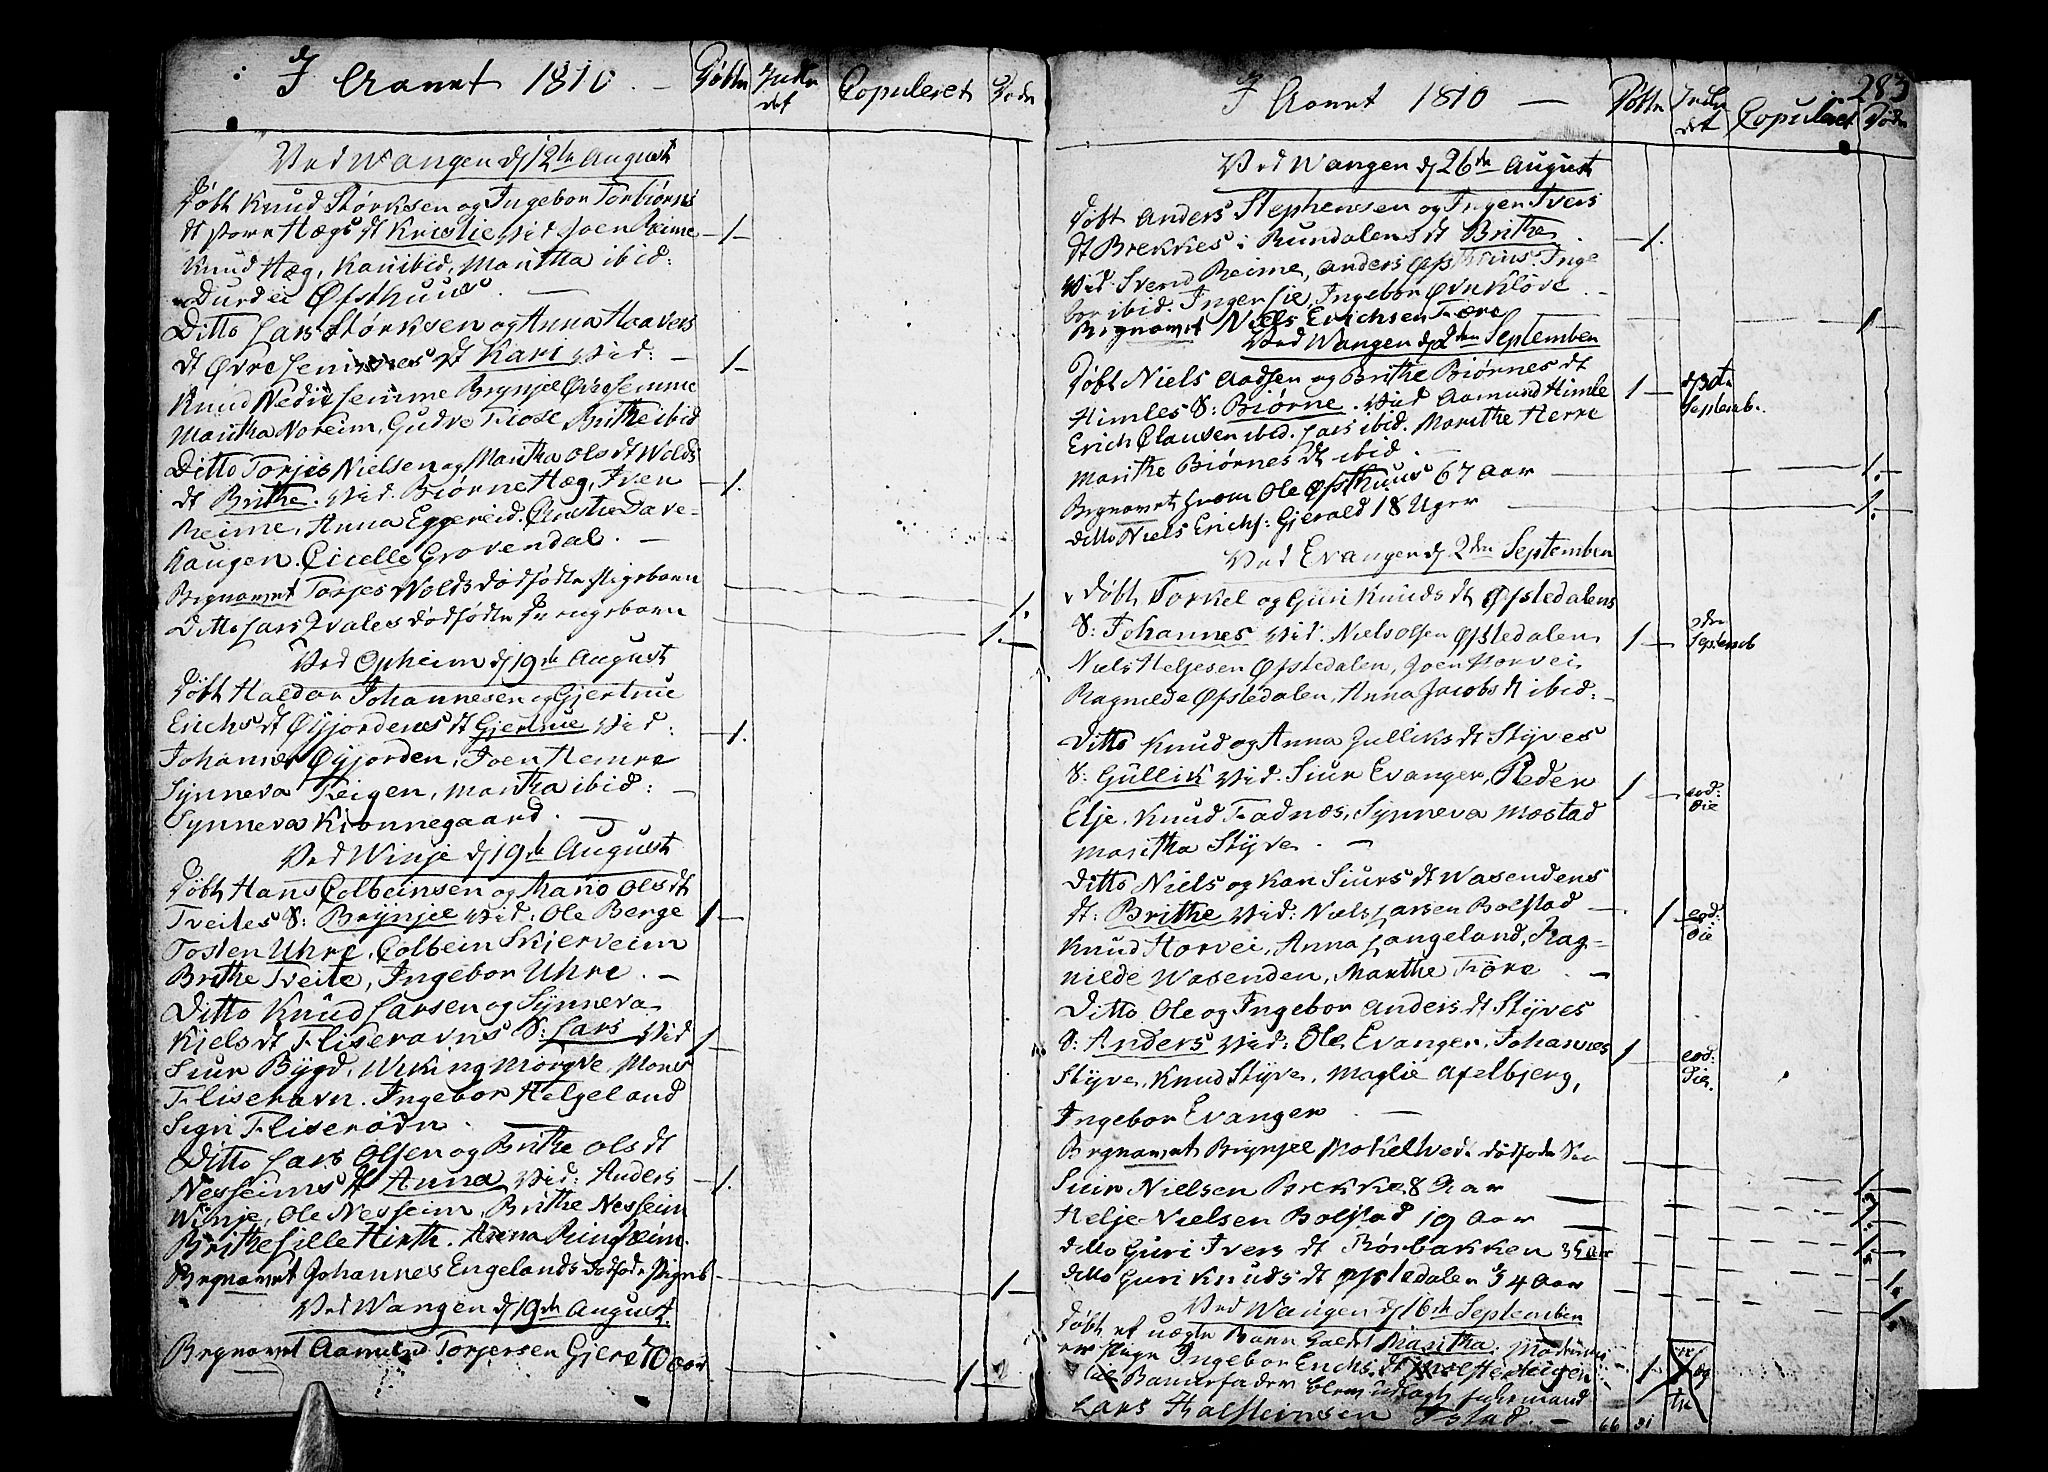 I Aaret 1810. — Døbte Indledet Copuleret Døde
Ved Wangen d 12te August
Døbt Knud Størksen og Ingebor Torbiørns
dt Hægs dt Kristie Vid Joen Reime — 1 —
Knud Hæg, Kari ibid, Maritha ibid:
Durdei Øfsthuus —
Ditto Lars Størksen og Anna Haavers
dt Øvre dt Kari Vid: — 1 —
Knud Nedre Semme Brynjel Øvre Semme
Maritha Noreim, Gudve Fiose Brithe ibid
Ditto Torjes Nielsen og Maritha Ols dt Wolds
dt Brithe. Vid. Biørne Hæg, Iven — 1.
Reime, Anna Eggereid. Christie Dave-
kaugen. Cicelle Grovendal. —
Begravet Torjes Wolds dødfødte Pigebarn 1.
Ditto Lars dødfødte Drengebarn 1. —
Ved Opheim d 19de August
Døbt Haldor Johannesen og Gjertrue
Erichs dt Øyjordens dt Gjertrue Vid: — 1.
Johannes Øyjorden, Joen Hemre
Synneva Teigen, Maritha ibid: —
Synneva Kionnegaard. —
Ved Winje d 19de August
Døbt Hans Colbeinsen og Mario Ols dt
Tveites S: Brynjel Vid: Ole Berge 1 —
Tosten Uhre, Colbein Skierveim
Brithe Tveite, Ingebor Uhre. —
Ditto Knud Larsen og Synneva
Kiels dt Fliseravns S: Lars Vid 1 —
Siur Bygd, Wiking Mørqve, Mons
Fliseravn. Ingebor Helgeland
Sigri Fliserødn.
Ditto Lars Olsen og Brithe Ols dt
Nesseims dt Anna Vid: Anders — 1.
Winje, Ole Nesseim, Brithe Nesseim
Brithe Lille Hirth. Anna Ringheim.
Begravet Johannes Engelands Dødfødte Pigeb 1 —
Ved Wangen d 19de August.
Begravet Aamund Torjersen Gjere 70 aar 1 —
I Aaret 1810 — Døbte Indledet Copuleret Døde
283
Ved Wangen d 26de August
Døbt Anders Stephensen og Inger Ivers
dt Brekkes i Rundalens dt Brithe. — 1.
Vid Svend Reime, Anders Øfsthuus. Inge
bor ibid. Inger Lie, Ingebor Øvrekløve. —
Begravet Niels Erichsen Fære 1 —
Ved Wangen d 2den September
Døbt Niels Aadsen og Brithe Biørnes dt
Himles S: Biørne. Vid Aamund Himle 1 — Septemb.
Erich Clausen ibid. Lars ibid. Marithe Herre
Marithe Biørnes dt ibid. —
Begravet Ole Øfsthuus 67 Aar 1.
ditto Niels Erichs: Gjerald 18 Uger 1.
Ved Evanger d 2den September
Døbt Torkel og Guri Knuds dt Øfstedalens
S: Johannes Vid. Niels Olsen Øfstedalen, 1 — 2den Septemb
Niels Heljesen Øfstedalen, Joen Horvei,
Ragnilde Øfstedalen, Anna Jacobs dt ibid: —
Ditto Knud og Anna Gulliks dt Styves
S. Gullik Vid. Siur Evanger, Peder 1 — eod: die
Elje. Knud Fadnæs, Synneva Mostad
Maritha Styve. —
Ditto Niels og Kari Siurs dt Wasendens
dt: Brithe Vid: Niels Larsen Bolstad — 1 — eod: die
Knud Horvei, Anna Langeland, Rag-
nilde Wasenden, Marthe Fiøre. —
Ditto Ole og Ingebor Anders dt Styves
S: Anders Vid: Ole Evanger. Johannes 1 — eod: Die.
Styve, Knud Styve, Maglie Afelbjerg,
Ingebor Evanger. —
Begravet Brynjel dødfødte
Siur Nielsen Brekke 8 Aar 1 —
Helje Nielsen Bolstad 19 Aar 1.
ditto Guri Ivers dt Røsbakken 35 aar 1.
ditto Guri Knuds dt Øfstedalen 34 Aar 1.
Ved Wangen d 16de September 1.
Døbt et uægte Barn kaldet Maritha. Moderen
er Pigen Ingebor Erichs dt 1
til Barnefader blev udlagt
Lars Halsteinsen Istad. — 66 31